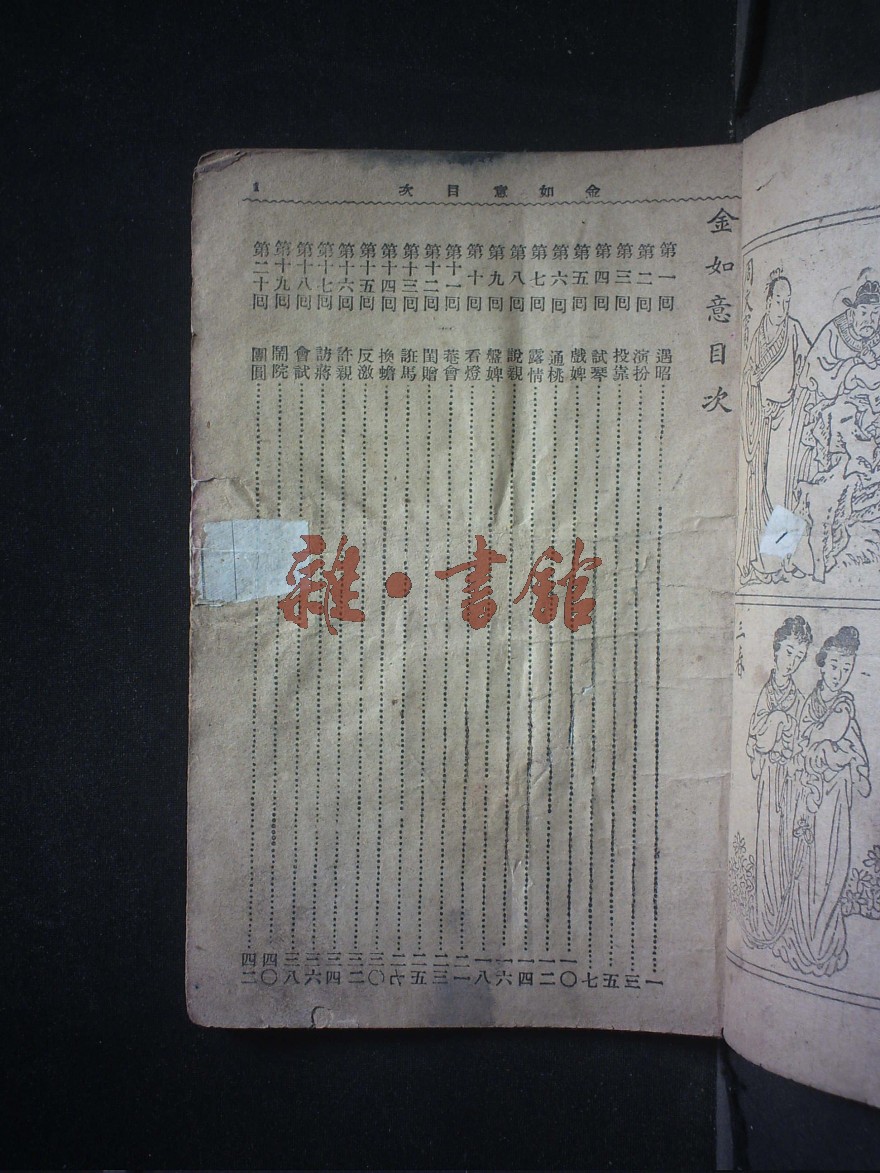 金如意目次
1
金如意目次
第一回 遇昭 一
第二回 演扮 三
第三回 投靠 五
第四回 試琴 七
第五回 戲婢 一〇
第六回 通桃 一二
第七回 露情 一四
第八回 說親 一六
第九回 盤婢 一八
第十回 看燈 二一
第十一回 菴會 二三
第十二回 閨贈 二五
第十三回 誑馬 二七
第十四回 換蟾 三〇
第十五回 反激 三二
第十六回 許親 三四
第十七回 訪蔣 三六
第十八回 會試 三八
第十九回 鬧院 四〇
第二十回 團圓 四二
雜·書館
三春